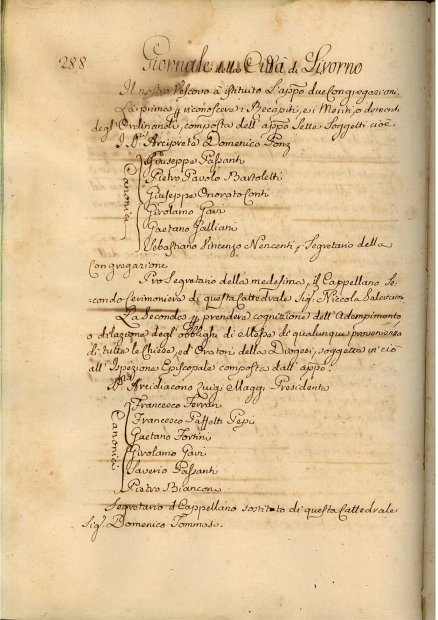 288 Giornale della Città di Livorno
Il nostro Vescovo à istituito l'appo due Congregazioni
La prima p riconoscere i Recapiti, e i Meriti, o demeriti
degl'Ordinandi, composta dell'appo Sette Soggetti cioè
Arciprete Domenico Ponz
Canonici
Giuseppe Passanti
Pietro Paolo Bartoletti
Giuseppe Onorato Conti
Girolamo Gavi
Gaetano Galliani
Sebastiano Vincenzo Nencenti, Segretario della
Congregazione
Pro Segretario della medesima, il Cappellano Se=
condo Cerimoniere di questa Cattedrale Sig. Niccola
La Seconda p prendere cognizione dell'Adempimento
o dilazione degl'obblighi di Messe di qualunque provenienza
di tutte le Chiese, ed Oratori della Diogesi, soggetta in ciò
all'Ispezione Episcopale composta dall'appo.
Arcidiacono Luigi Maggi Presidente
Canonici
Francesco Ferrari
Francesco Passetti Pepi
Gaetano Fortini
Girolamo Gavi
Saverio Passanti
Pietro Bianconi
Segretario il Cappellano sostituto di questa Cattedrale
Sig. Domenico Tommasi.